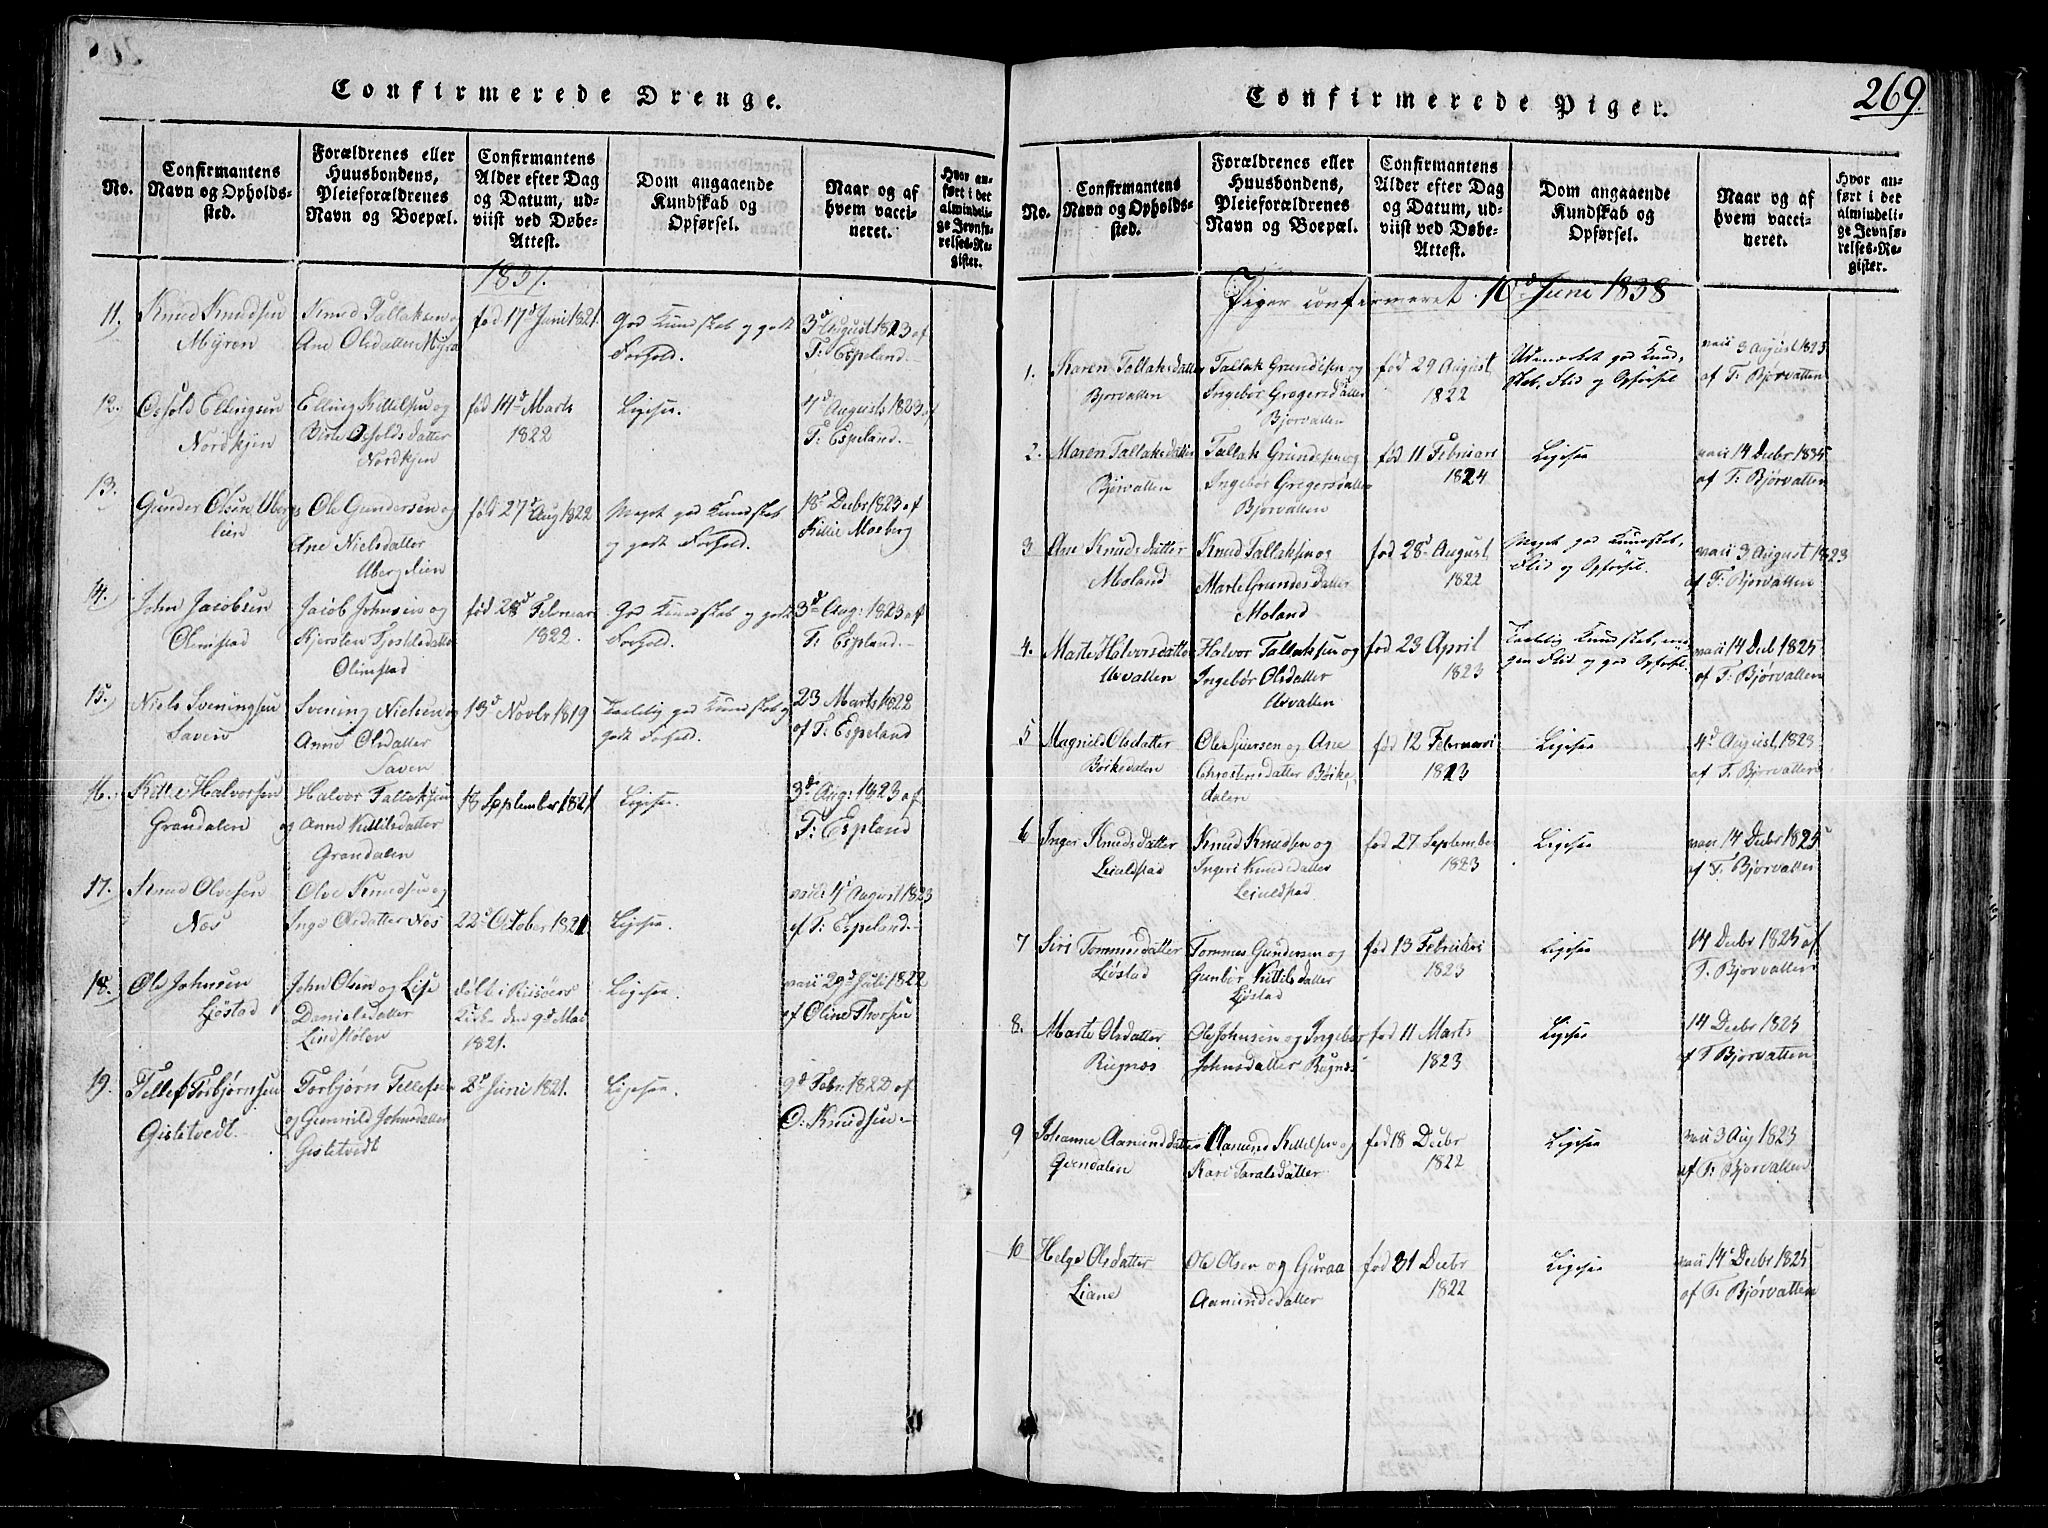 Confirmerede Drenge.
No.
Confirmantens
Navn og Opholds-
sted.
Forældrenes eller
Huusbondens,
Pleieforældrenes
Navn og Boepæl.
Confirmantens
Alder efter Dag
og Datum, ud-
viist ved Døbe-
Attest.
Dom angaaende
Kundskab og
Opførsel.
Naar og af
hvem vacci-
neret.
Hvor an-
ført i det
almindeli-
ge Jevnfø-
relses-Re-
gister.
1837.
11.
Knud Knudsen
Myren
Knud Tallaksen og
Ane Olsdatter Myra
fød 17d Juni 1821.
God Kundskab og godt
Forhold.
3d August 1823 af
T: Espland.
12.
Osfold Ellingsen
Nordkjen
Elling Kittelsen og
Birte Osfolds datter
Nordkjen
fød 14d Marts
1822
Ligesaa.
4d Augusts 1823 af
T: Espeland.
13.
Gunder Olsen Uberg
lien
Ole Gundersen og
Ane Nielsdatter
Uberglien
fød 27d Aug 1822
Meget god Kundskab
og godt Forhold.
18d Decbr 1823 af
Kittil Moeberg
14.
John Jacobsen
Olimstad
Jacob Johnsen og
Kjersten Tjostelsdatter
Olimstad
fød 28d Februar
1822.
God Kundskab og godt
Forhold.
3d Aug: 1823 af
T: Espland.
15.
Niels Sveningsen
Saven
Svening Nielsen og
Anne Olsdatter
Saven
13d Novbr 1819
Taalelig god Kundskab og
godt Forhold.
23 Marts 1822
af T: Espeland
16.
Kittle Halvorsen
Grandalen
Halvor Tallaksen
og Anne Kittilsdatter
Grandalen
18 September 1821.
Ligesaa.
3d Aug: 1823 af
T: Espland
17.
Knud Olvesen
Nes
Olve Knudsen og
Inge Olsdatter Nes
22d October 1821
Ligesaa.
vacc: 4d August 1823
af T: Espeland.
18.
Ole Johnsen
Ljøstad
John Olsen og Lise
Danielsdatter
Lindstølen
døbt i Riisøers
Kirke den 9d Mai
1821.
Ligesaa.
vacc 29d Juli 1822
af Oline Thorsen
19.
Tellef Torbjørnsen
Gisletvedt.
Torbjørn Tellefsen
og Gunnild Johnsdatter
Gisletvedt
2d Juni 1821.
Ligesaa.
9d Febr: 1822 af
O: Knudsen.
Confirmerede Piger.
269.
No.
Confirmantens
Navn og Opholds-
sted.
Forældrenes eller
Huusbondens,
Pleieforældrenes
Navn og Boepæl.
Confirmantens
Alder efter Dag
og Datum, ud-
viist ved Døbe-
Attest.
Dom angaaende
Kundskab og
Opførsel.
Naar og af
hvem vacci-
neret.
Hvor an-
ført i det
almindeli-
ge Jevnfø-
relses-Re-
gister.
Piger confirmeret 10d Juni 1838
1.
Karen Tallaksdatter
Bjorvatten
Tallak Grundesen og
Ingebor Gregersdatter
Bjorvatten
fød 29 August
1822
Udmærket god Kund-
skab, Flid og Opførsel
vacc 3 August 1823
af T: Bjorvatten
2.
Maren Tallaksdatter
Bjørvatten
Tallak Grundesen og
Ingebor Gregersdatter
Bjorvatten
fød 11 Februari
1824
Ligesaa
vacc 14 Decbr 1835
af T: Bjørvatten
3
Ane Knudsdatter
Moland
Knud Tallaksen og
Marte Gunnersdatter
Moland
fød 28d August
1822
Meget god Kundskab,
Flid og Opførsel.
vacc 3 August 1823
af T: Bjorvatten
4.
Marte Halvorsdatter
Usvatten
Halvor Tallaksen og
Ingebør Olsdatter
Usvatten
fød 23 April
1823
Taalelig Kundskab, me-
gen Flid og god Opførsel.
vacc 14 Decb 1825
af T: Bjørvatten
5
Magnild Olsdatter
Bøiksdalen
Ole Siversen og Ane
Christensdatter Bøike-
dalen
fød 12 Februari
1823
Ligesaa
4d August 1823
af T. Bjorvatten
6
Ingeri Knudsdatter
Leiuldstad
Knud Knudsen og
Ingeri Knudsdatter
Leiuldstad
fød 27 September
1823
Ligesaa
vacc 14 Decbr 1825
af T. Bjørvatten
7
Siri Tommesdatter
Ljøstad
Tommes Gundersen og
Gunbør Kittilsdatter
Ljøstad
fød 13 Februari
1823
Ligesaa
14 Decbr 1825 af
T. Bjorvatten
8.
Marte Olsdatter
Rugnes
Ole Johnsen og Ingebor
Johnsdatter Rugnes
fød 11 Marts
1823
Ligesaa
14 Decbr 1825
af T Bjorvatten
9
Johanne Aamundsdatter
Qvendalen
Aamund Kittilsen og
Kari Taralsdatter
fød 18 Decbr
1822
Ligesaa
vacc 3 Aug 1823
af T: Bjorvatten
10
Helge Olsdatter
Liane
Ole Olsen og Guraa
Aamundsdatter
fød 31 Decbr
1822
Ligesaa
vacc 14d Decbr 1825
af T: Bjørvatten